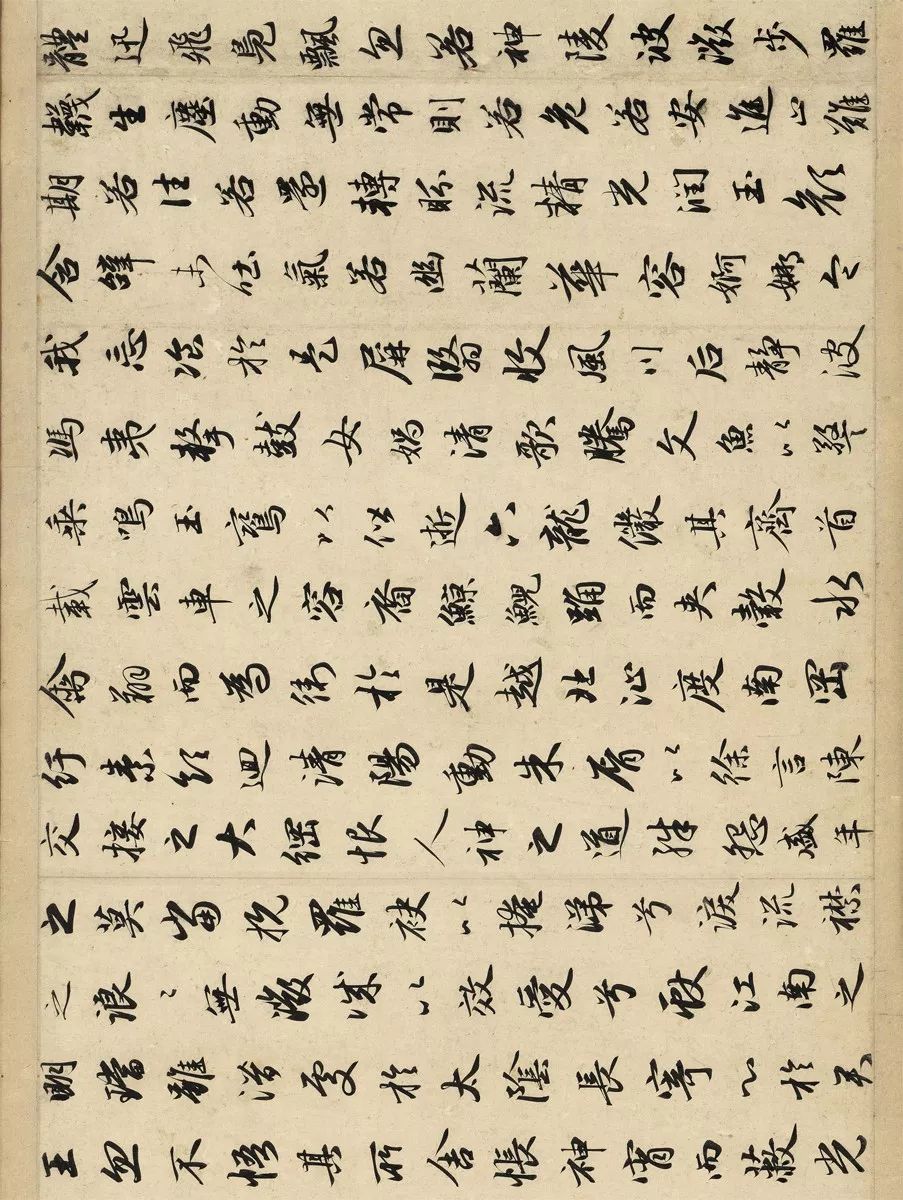 體迅飛鳧飄忽若神陵波微步羅
韈生塵動無常則若危若安進止難
期若往若還轉眄流精光潤玉顏
含辭未吐氣若幽蘭華容婀娜令
我忘飡於是屏翳收風川后靜波
馮夷擊鼓女媧清歌騰文魚以警
乘鳴玉鸞以偕逝六龍儼其齊首
載雲車之容裔鯨鯢踊而夾轂水
禽翔而為衛於是越北沚度南岡
紆素領迴清陽動朱脣以徐言陳
交接之大綱恨人神之道殊怨盛年
之莫當抗羅袂以掩涕兮淚流襟
之浪〻無微誠以效愛兮獻江南之
明璫雖潛處於太陰長寄心於君
王忽不悟其所舍悵神宵而蔽光